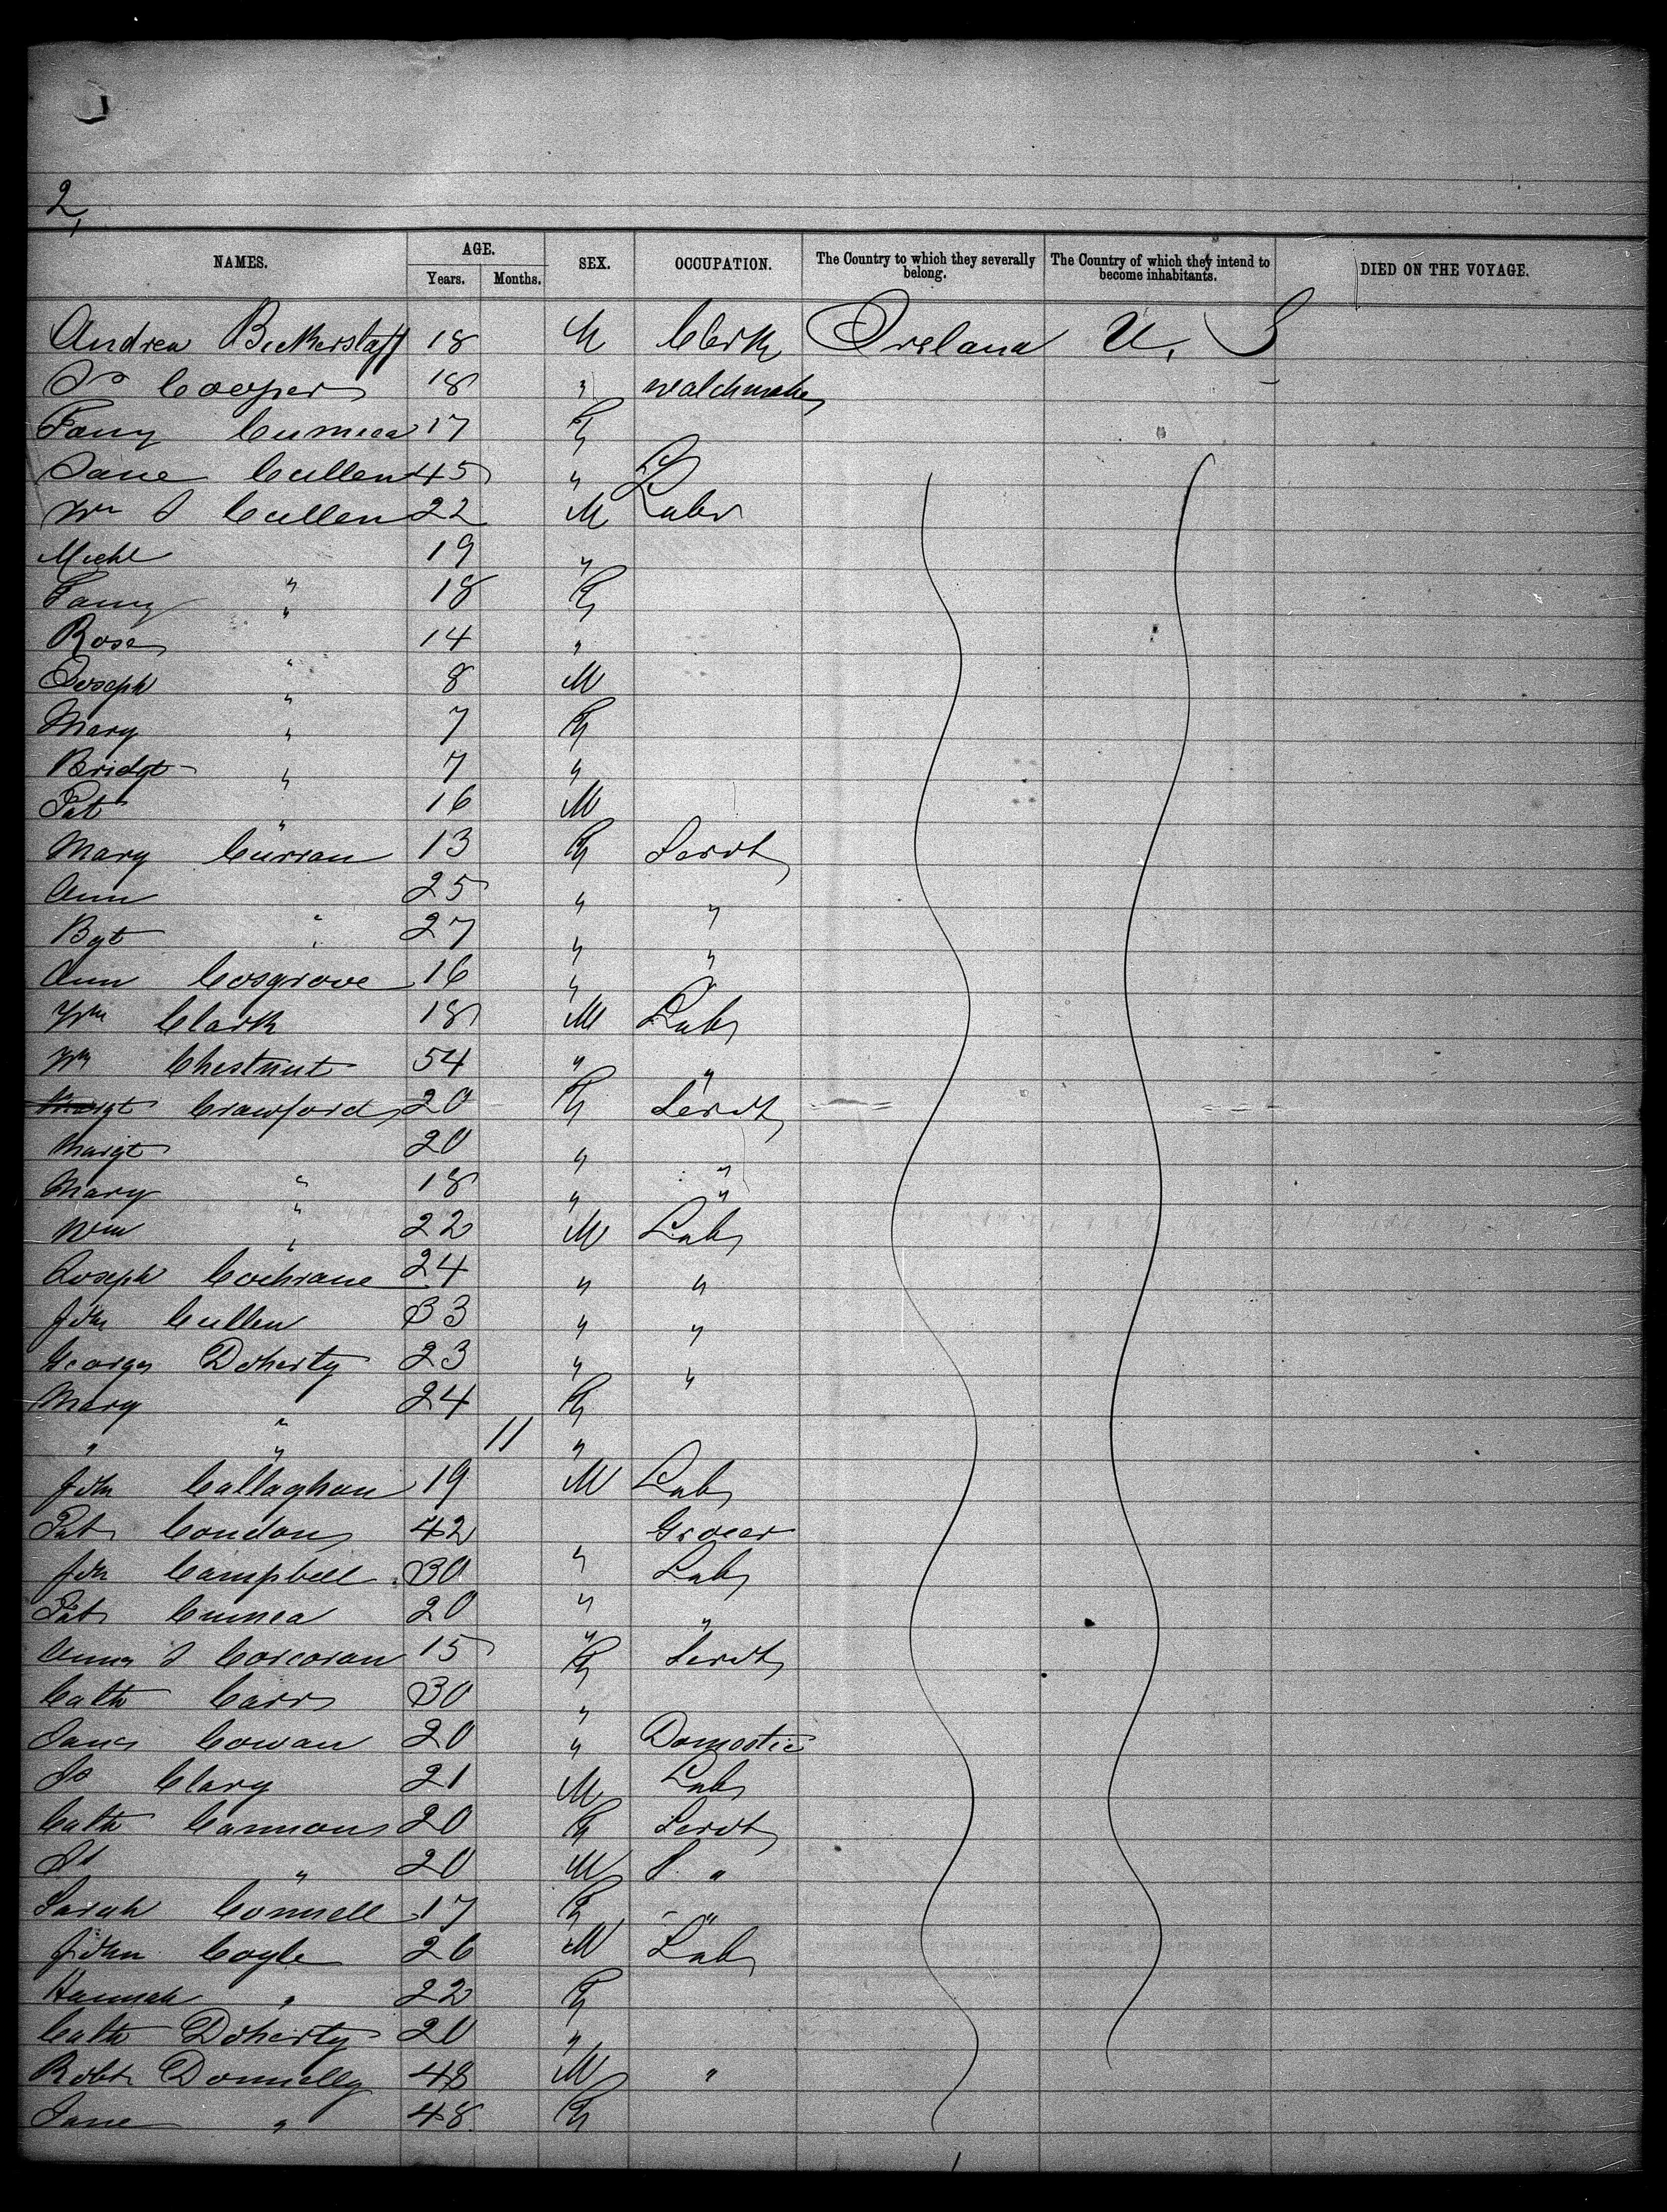 2,
NAMES. AGE. Years. Months. SEX. OCCUPATION. The Country to which they severally belong. The Country of which they intend to become inhabitants. DIED ON THE VOYAGE.
Andrew Bickerstaff 18 M Clerk Ireland U, S
Jo Cooper 18 " watchmaker
Fanny Cumica 17 F
Jane Cullen 45 "
Wm J Cullen 22 M Labr
Michl " 19 "
Fanny " 18 F
Rose " 14 "
Joseph " 8 M
Mary " 7 F
Bridgt " 7 "
Pat " 16 M
Mary Curran 13 F Servt
Ann " 25 " "
Bgt " 27 " "
Ann Cosgrove 16 " "
Wm Clark 18 M Lab
Wm Chestnut 54 " "
Margt Crawford 20 F Servt
Margt " 20 " "
Mary " 18 " "
Wm " 22 M Lab
Joseph Cochrane 24 " "
John Cullen 33 " "
George Doherty 23 " "
Mary " 24 F
" " 11 "
John Callaghan 19 M Lab
Pat Condon 42 " Grocer
John Campbell 30 " Lab
Pat Cumea 20 " "
Anna J Corcoran 15 F Servt
Cath Carr 30 "
Jane Cowan 20 " Domestic
Jo Clary 21 M Lab
Cath Cannon 20 F Servt
" 20 M "
Sarah Connell 17 F "
John Coyle 26 M Lab
Hannah " 22 F
Cath Doherty 20 "
Robt Donnelly 48 M "
Jane " 48 F